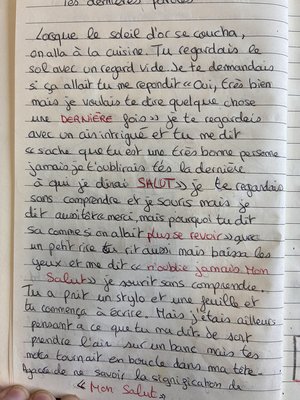 les dernières paroles
Lorsque le soleil d'or se coucha,
on alla à la cuisine. Tu regardais le
sol avec un regard vide. Je te demandais
si ça allait tu me repondit « Oui, très bien
mais je voulais te dire quelque chose
une DERNIÈRE fois » je te regardais
avec un air intrigué et tu me dit
« sache que tu est une très bonne personne
jamais je t'oublirais tés la dernière
à qui je dirai SALUT » je te regardais
sans comprendre et je souris mais je
dit aussi têt merci, mais pourquoi tu dit
sa comme si on allait plus se revoir » avec
un petit rire tu rit aussi mais baissa les
yeux et me dit « n'oublie jamais Mon
Salut » je sourit sans comprendre.
Tu a prait un stylo et une feuille et
tu commença à écrire. Mais j'étais ailleurs
pensant a ce que tu me dit de
prendre l'air sur un banc mais tes
mots tournait en boucle dans ma tête.
Agacé de ne savoir la signification de
« Mon Salut »